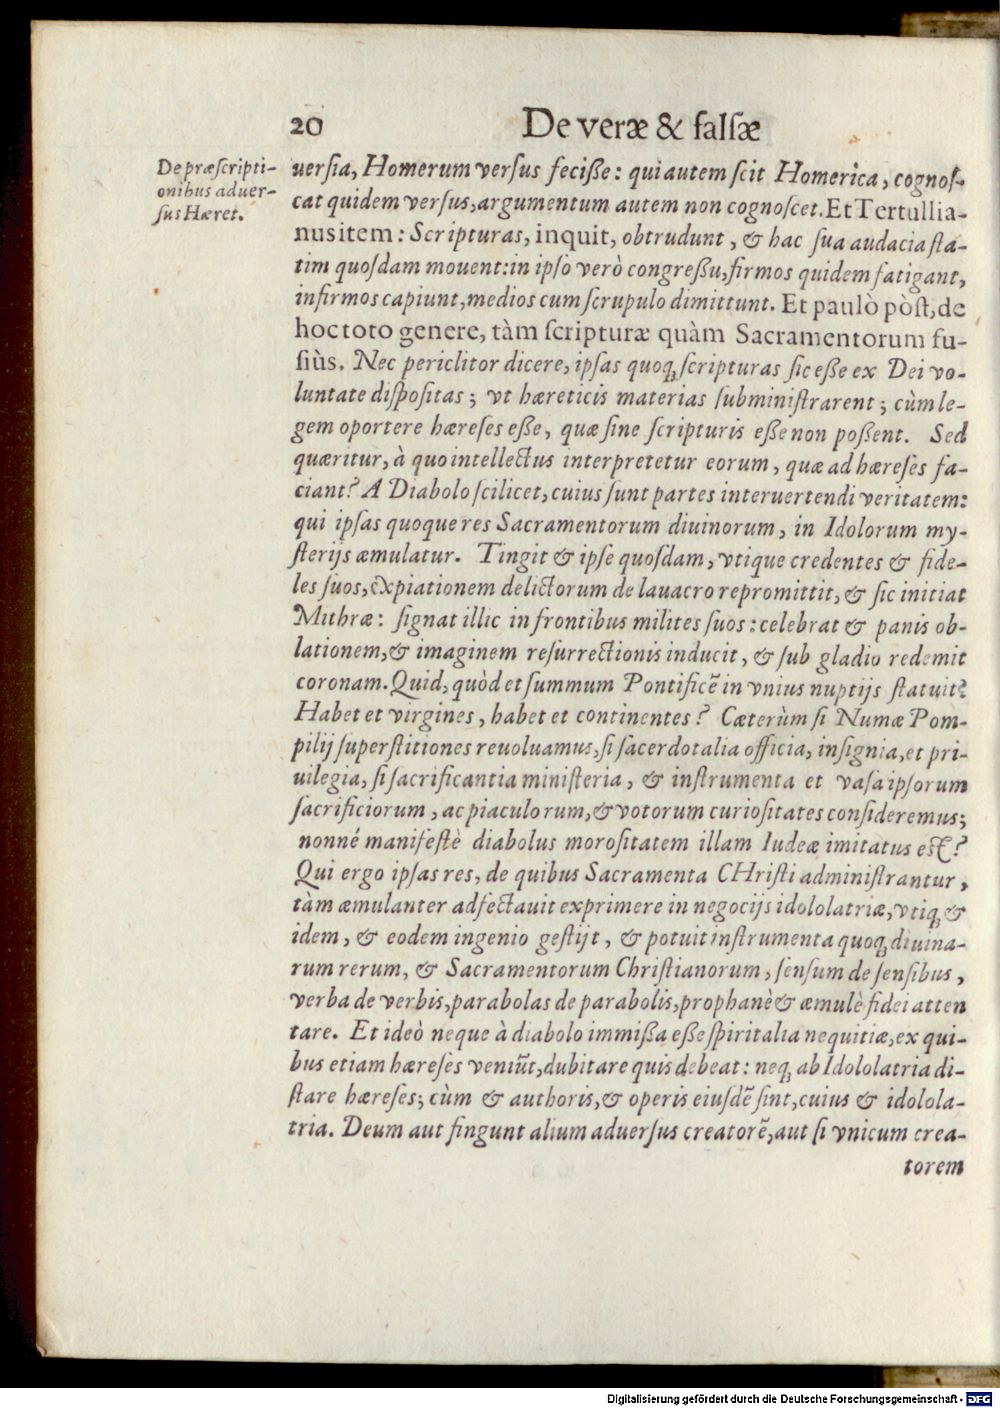 20
De veræ & falsæ
De præscripti-
onibus aduer-
sus Hæret.
uersia, Homerum versus feciße: qui autem scit Homerica, cognos-
cat quidem versus, argumentum autem non cognoscet. Et Tertullia-
nus item: Scripturas, inquit, obtrudunt, & hac sua audacia sta-
tim quosdam mouent: in ipso verò congreßu, firmos quidem fatigant,
infirmos capiunt, medios cum scrupulo dimittunt. Et paulò pòst, de
hoc toto genere, tàm scripturæ quàm Sacramentorum fu-
siùs. Nec periclitor dicere, ipsas quoq; scripturas sic eße ex Dei vo-
luntate dispositas; vt hæreticis materias subministrarent; cùm le-
gem oportere hæreses eße, quæ sine scripturis eße non poßent. Sed
quæritur, à quo intellectus interpretetur eorum, quæ ad hæreses fa-
ciant? A Diabolo scilicet, cuius sunt partes interuertendi veritatem:
qui ipsas quoque res Sacramentorum diuinorum, in Idolorum my-
sterijs æmulatur. Tingit & ipse quosdam, vtique credentes & fide-
les suos, expiationem delictorum de lauacro repromittit, & sic initiat
Mithræ: signat illic in frontibus milites suos: celebrat & panis ob-
lationem, & imaginem resurrectionis inducit, & sub gladio redemit
coronam. Quid, quòd et summum Pontificē in vnius nuptijs statuit?
Habet et virgines, habet et continentes? Cæterùm si Numæ Pom-
pilij superstitiones reuoluamus, si sacerdotalia officia, insignia, et pri-
uilegia, si sacrificantia ministeria, & instrumenta et vasa ipsorum
sacrificiorum, ac piaculorum, & votorum curiositates consideremus;
nonné manifestè diabolus morositatem illam Iudeæ imitatus est?
Qui ergo ipsas res, de quibus Sacramenta CHristi administrantur,
tàm æmulanter adfectauit exprimere in negocijs idololatriæ, vtiq; &
idem, & eodem ingenio gestijt, & potuit instrumenta quoq; diuina-
rum rerum, & Sacramentorum Christianorum, sensum de sensibus,
verba de verbis, parabolas de parabolis, prophanè & æmulè fidei atten
tare. Et ideò neque à diabolo immißa eße spiritalia nequitiæ, ex qui-
bus etiam hæreses veniūt, dubitare quis debeat: neq; ab Idololatria di-
stare hæreses; cùm & authoris, & operis eiusdē sint, cuius & idolola-
tria. Deum aut fingunt alium aduersus creatorē, aut si vnicum crea-
torem
Digitalisierung gefördert durch die Deutsche Forschungsgemeinschaft - DFG